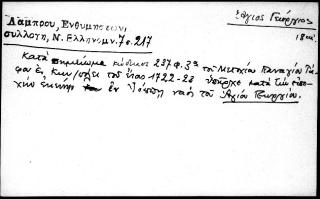 Λάμπρου, Ἐνθυμήσεων
συλλογή, Ν. Ἑλληνομν. 7ος 217
Ἅγιος Γεώργιος
Κατὰ σημείωμα κώδικος 237 φ. 3α τοῦ Μετοχίου Παναγίου Τά-
φου ἐν Κων/πόλει τοῦ ἔτους 1722-23 ὑπῆρχε κατὰ τὴν ἐπο-
χὴν ἐκείνην ἐν ναὸς τοῦ Ἁγίου Γεωργίου.